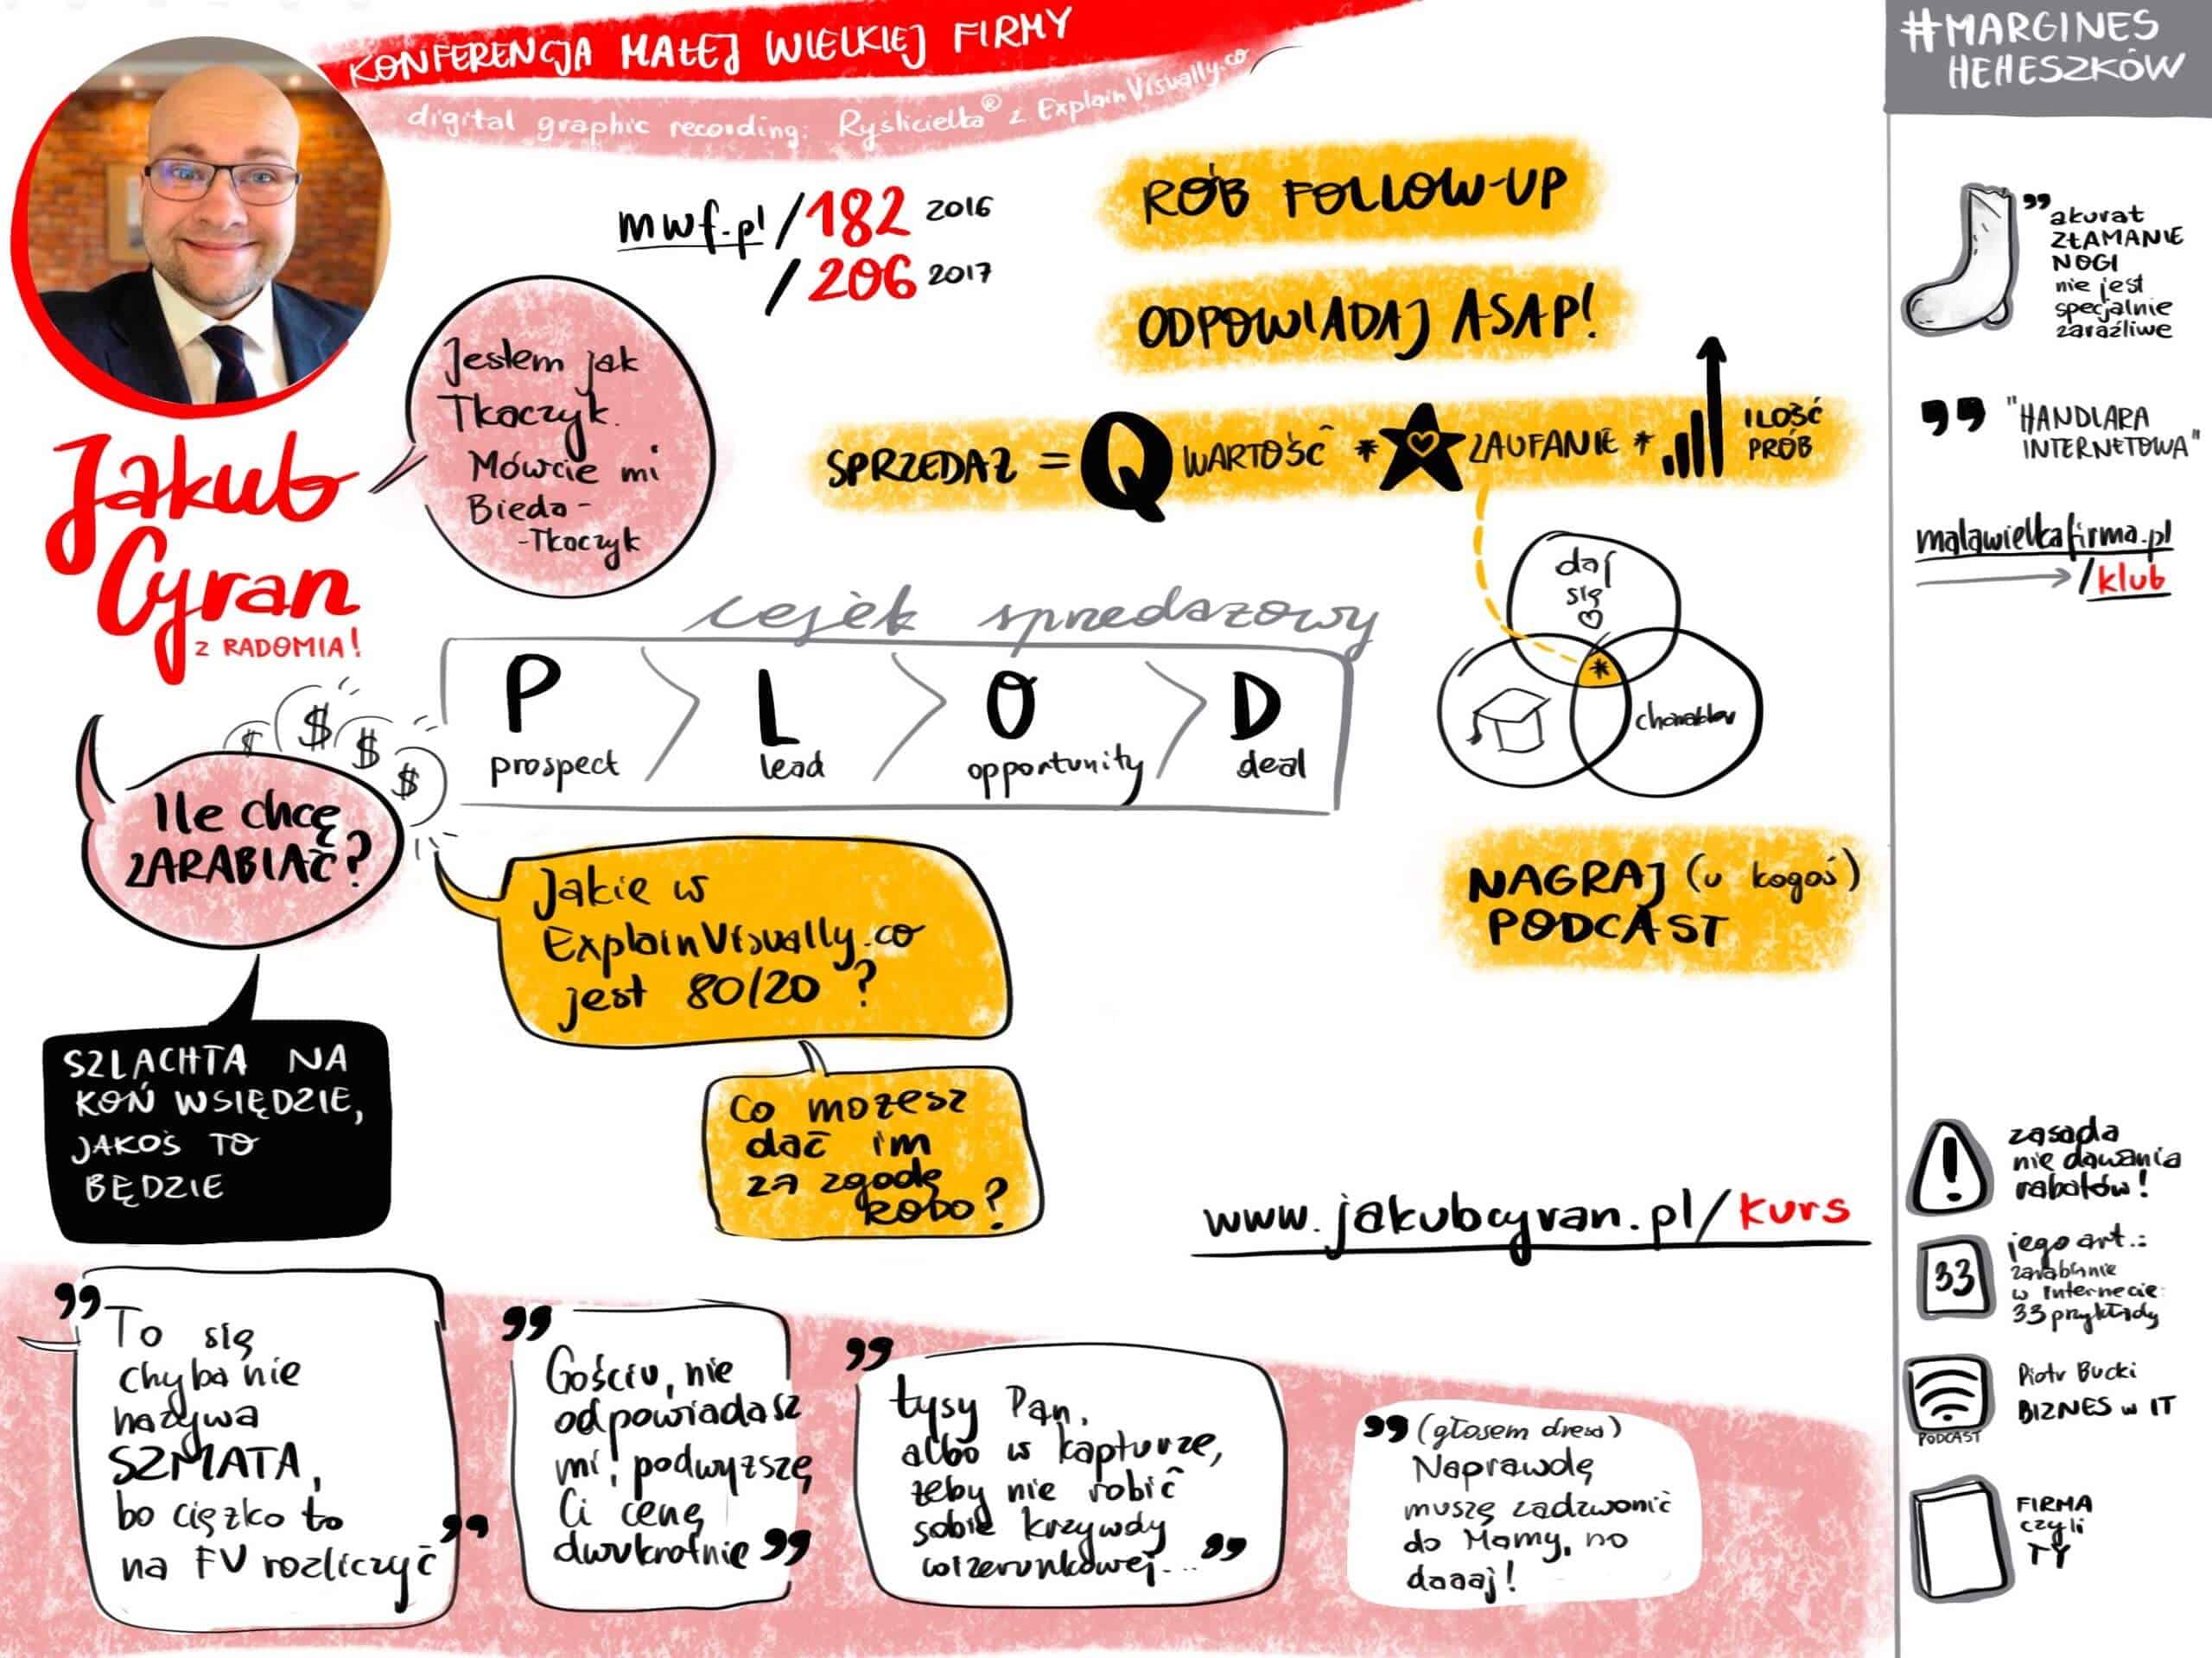 KONFERENCJA MAŁEJ WIELKIEJ FIRMY
digital graphic recording: Ryślicielka® z ExplainVisually.co
Jakub
Cyran
z RADOMIA!
mwf.pl/182 2016
/206 2017
Jestem jak
Tkaczyk.
Mówcie mi
Bieda-
-Tkaczyk
RÓB FOLLOW-UP
ODPOWIADAJ ASAP!
SPRZEDAŻ = Q WARTOŚĆ * ZAUFANIE * ILOŚĆ
PRÓB
daj
się
*
lejek sprzedażowy
P
prospect
L
lead
O
opportunity
D
deal
$ $ $ $
Ile chcę
ZARABIAĆ?
SZLACHTA NA
KOŃ WSIĘDZIE,
JAKOŚ TO
BĘDZIE
Jakie w
ExplainVisually.co
jest 80/20?
Co możesz
dać im
za zgodę
RODO?
NAGRAJ (u kogoś)
PODCAST
www.jakubcyran.pl/kurs
"To się
chyba nie
nazywa
SZMATA,
bo ciężko to
na FV rozliczyć"
"Gościu, nie
odpowiadasz
mi! podwyższę
Ci cenę
dwukrotnie"
"Łysy Pan,
albo w kapturze,
żeby nie robić
sobie krzywdy
wizerunkowej..."
"(głosem dresa)
Naprawdę
muszę zadzwonić
do Mamy, no
daaaj!
#MARGINES
HEHESZKÓW
"akurat
ZŁAMANIE
NOGI
nie jest
specjalnie
zaraźliwe
"HANDLARA
INTERNETOWA"
malawielkafirma.pl
/klub
zasada
nie dawania
rabatów!
33
jego art.:
zarabianie
w Internecie:
33 przykłady
PODCAST
Piotr Bucki
BIZNES w IT
FIRMA
czyli
TY